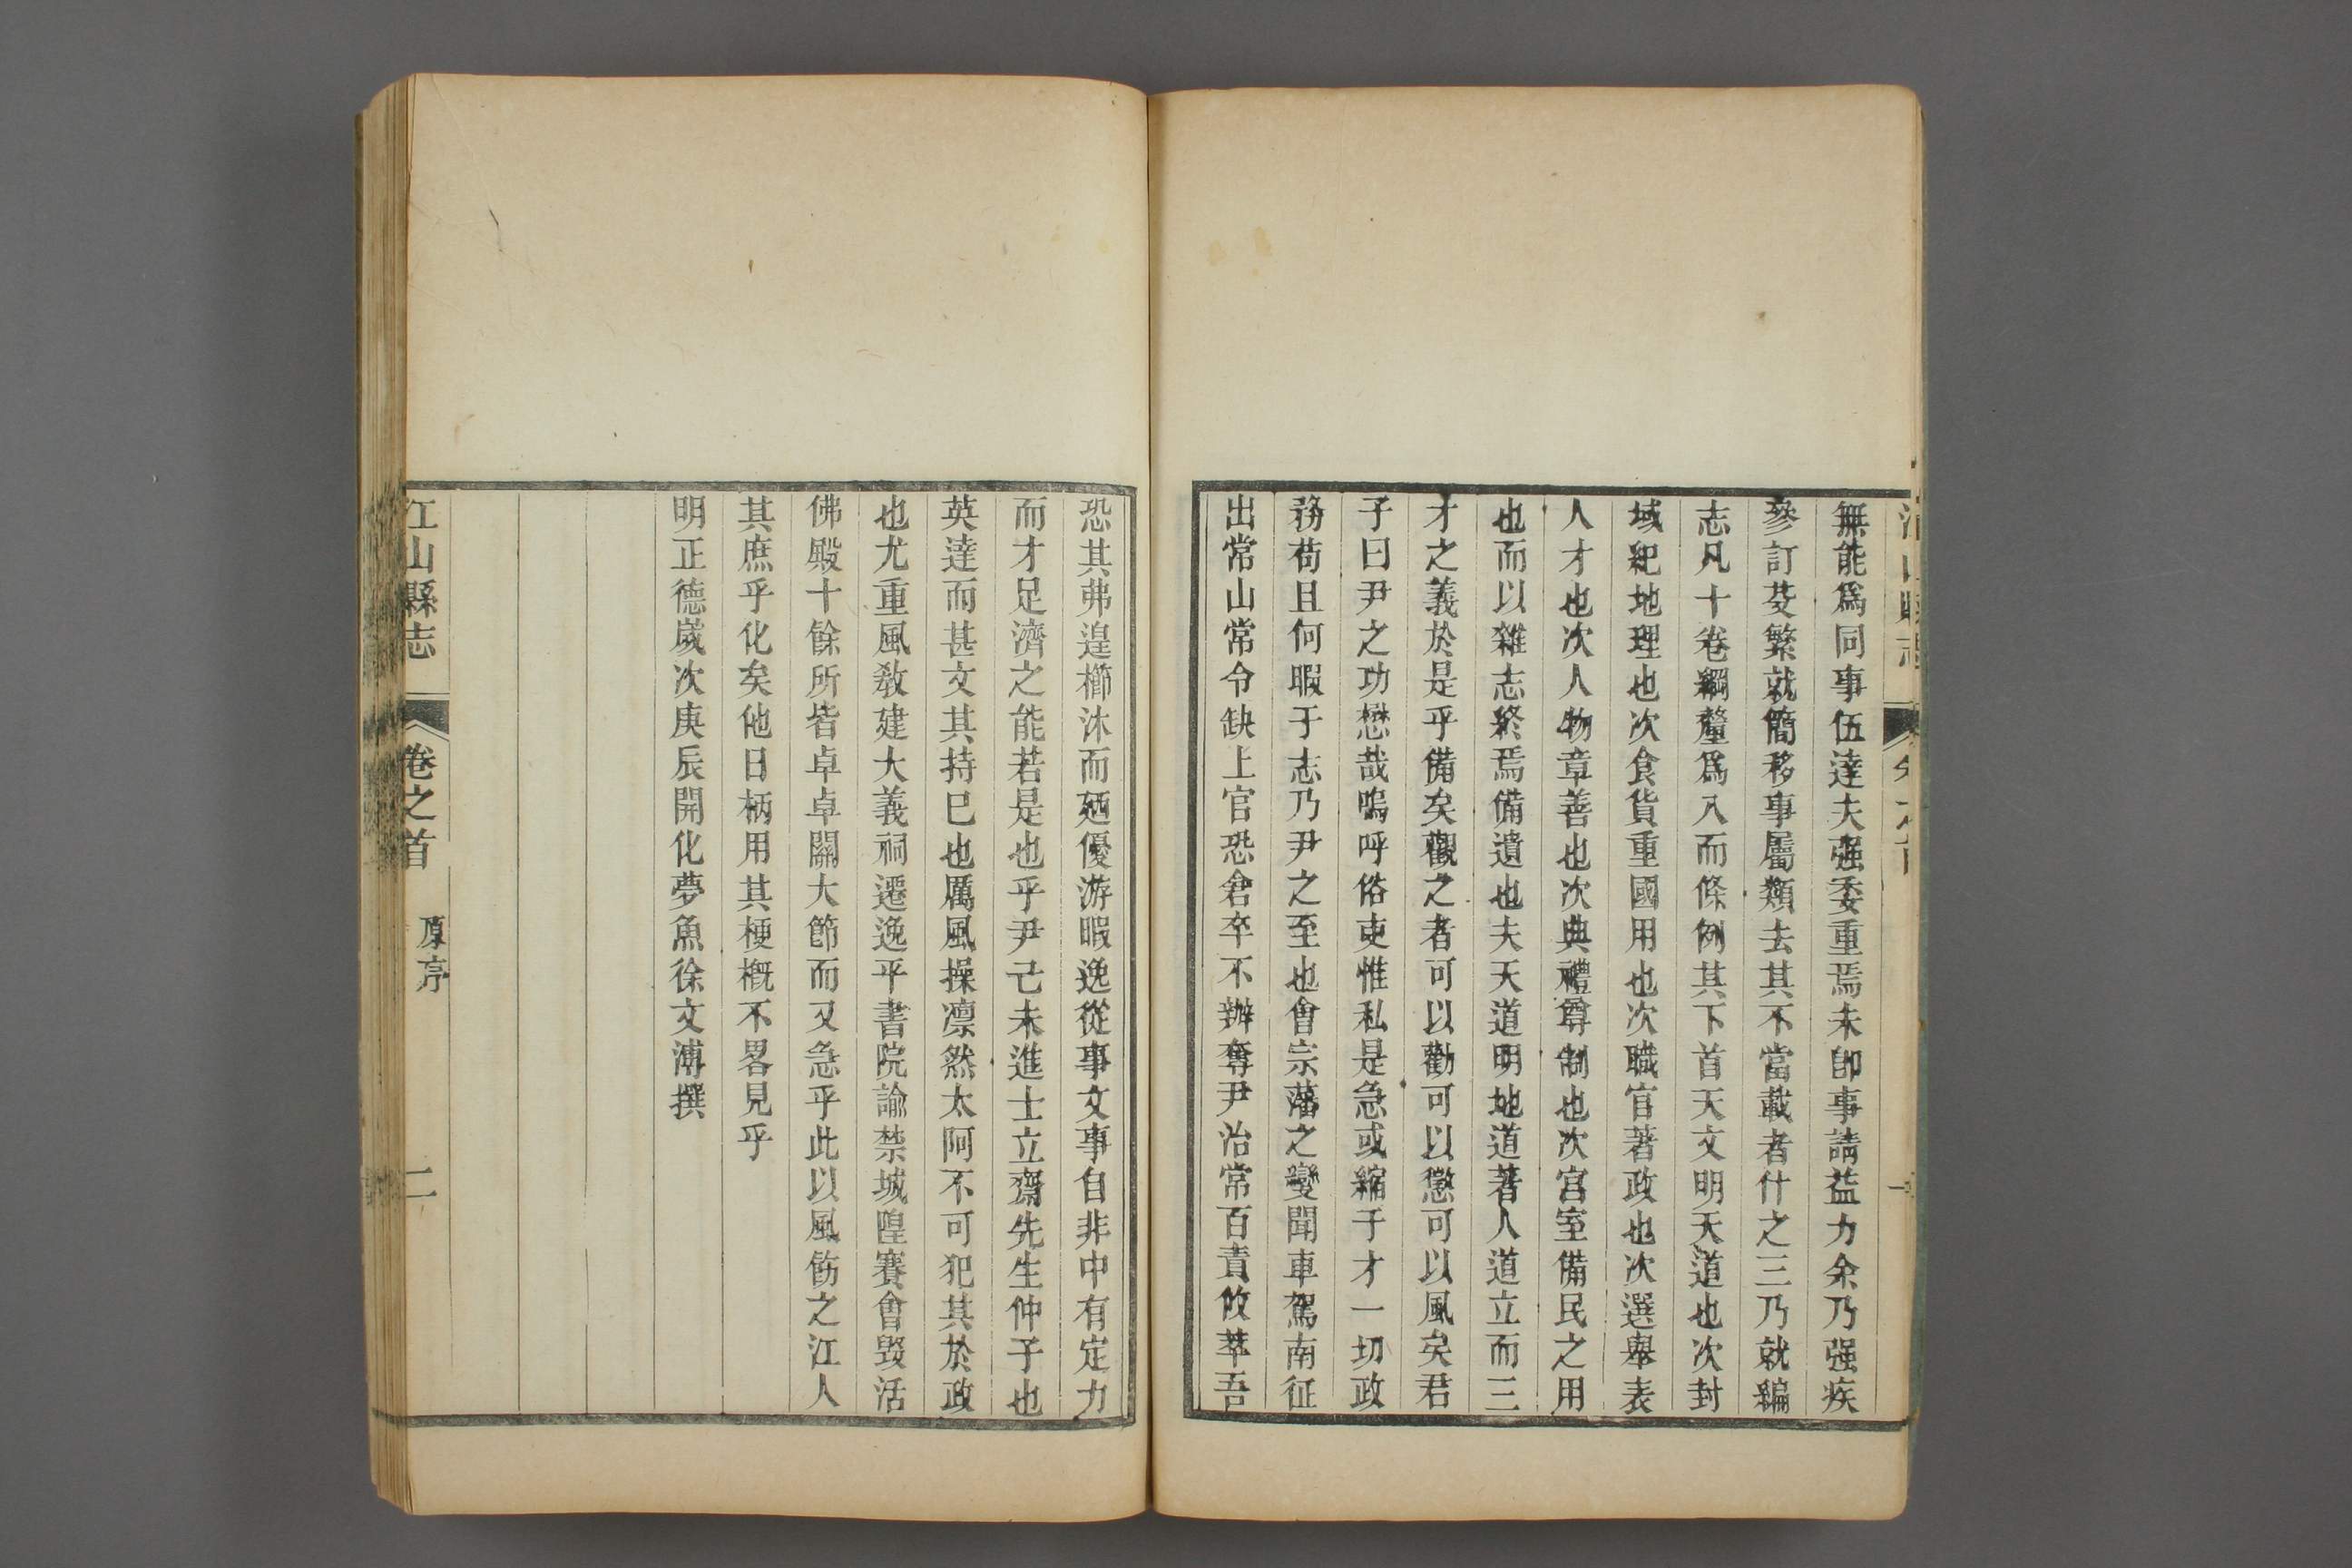 無能爲同事伍達夫强委重焉未卽事請益力余乃强疾
參訂芟繁就簡移事屬類去其不當載者什之三乃就編
志凡十卷綱釐爲八而條例其下首天文明天道也次封
域紀地理也次食貨重國用也次職官著政也次選舉表
人才也次人物章善也次典禮尊制也次宮室備民之用
也而以雜志終焉備遺也夫天道明地道著人道立而三
才之義於是乎備矣觀之者可以勸可以懲可以風矣君
子曰尹之功懋哉嗚呼俗吏惟私是急或縮于才一切政
務苟且何暇于志乃尹之至也會宗藩之變聞車駕南征
出常山常令缺上官恐倉卒不辦奪尹治常百責攸萃吾
恐其弗遑櫛沐而廼優游暇逸從事文事自非中有定力
而才足濟之能若是也乎尹己未進士立齋先生仲子也
英達而甚文其持巳也厲風操凛然太阿不可犯其於政
也尤重風敎建大義祠遷逸平書院諭禁城隍賽會毀活
佛殿十餘所皆卓卓關大節而又急乎此以風飭之江人
其庶乎化矣他日柄用其梗槪不畧見乎
明正德嵗次庚辰開化夢魚徐文溥撰
江山縣志 卷之首 原序 二